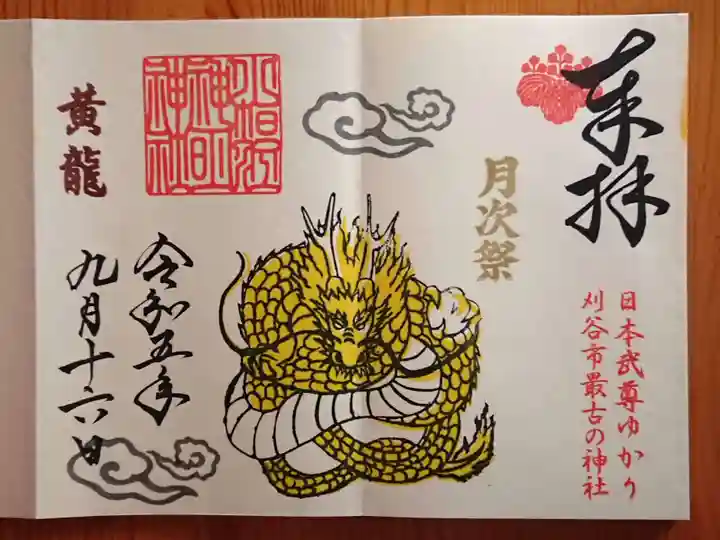 奉拝
日本武尊ゆかり
刈谷市最古の神社
月次祭
令和五年
九月十六日
黄龍